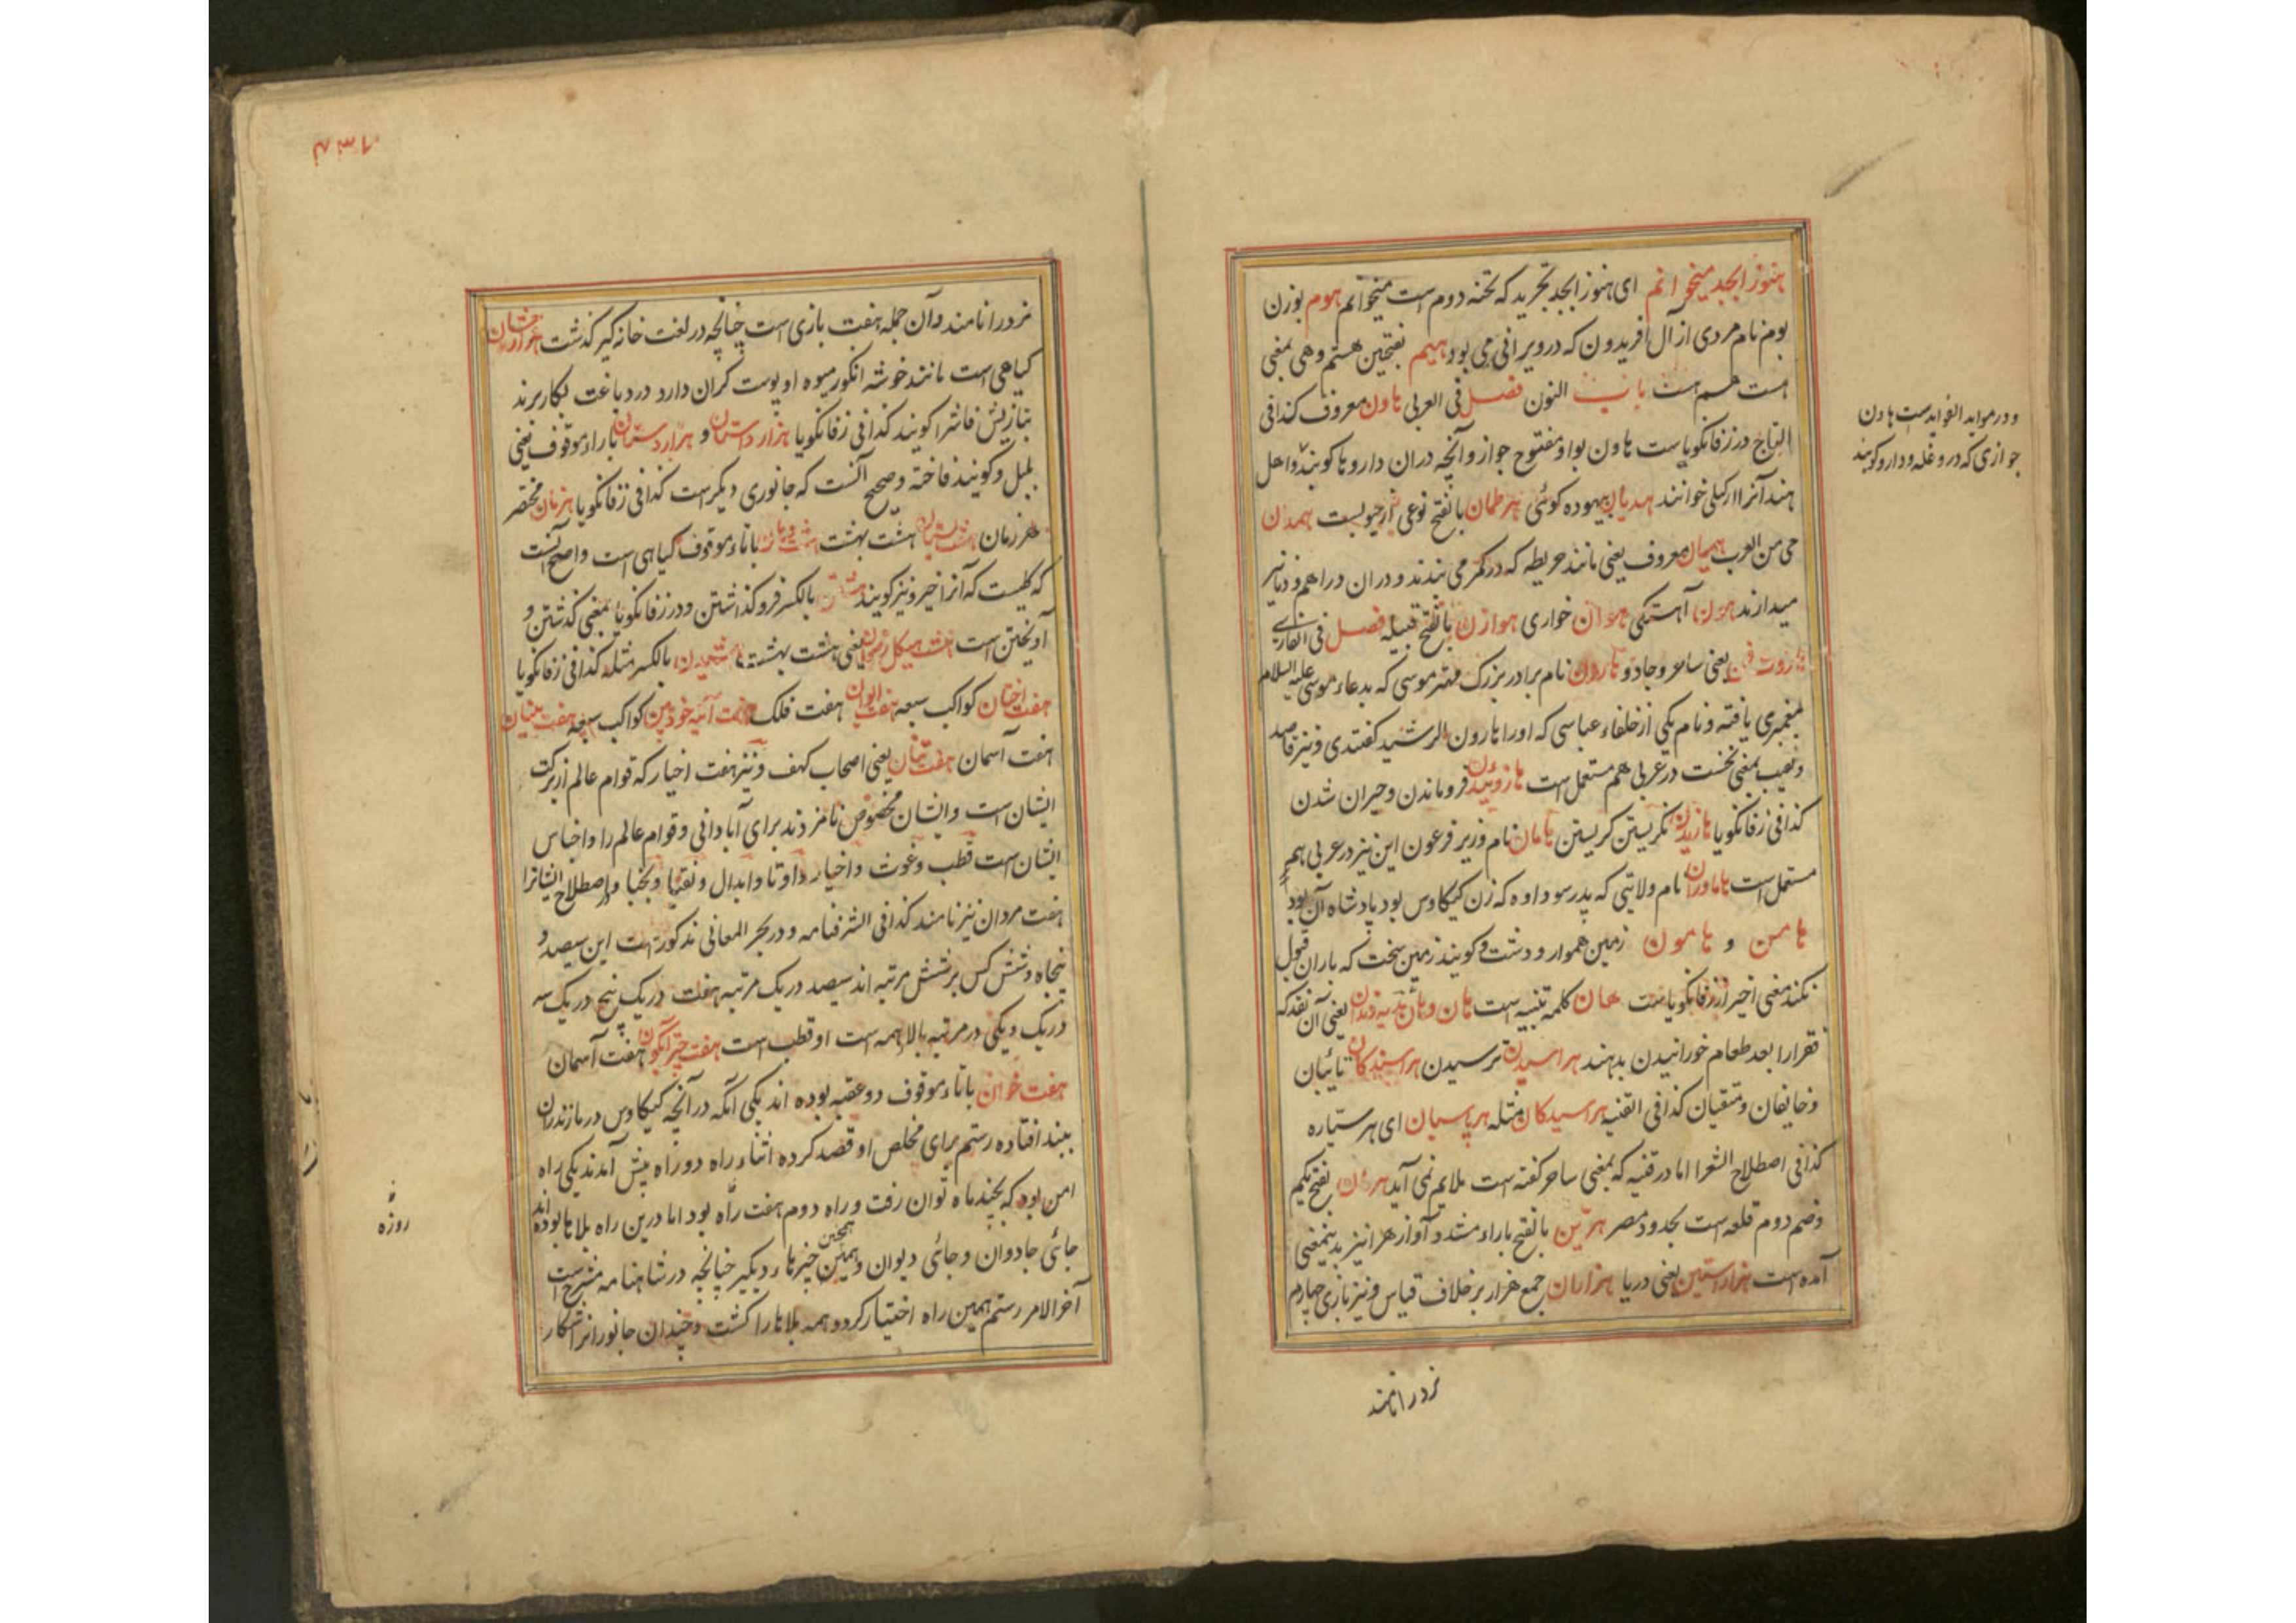 هنوز ابجد میخوانم ای هنوز ابجد تجرید که تخته دوم است میخوانم هوم بوزن
بوم نام مردی از آل افریدون که در ویرانی می بود هیم بفتحین هستم وهی بمعنی
است هم است باب النون فصل فی العربی هاون معروف کذا فی
التاج در زفانکویا ست هاون بواو مفتوح جواز وآنچه دران داروها کوبند واهل
هند آنرا خوانند هذیان بیهوده کوئی هرطمان بالفتح نوعی از حبوبست همدان
حی من العرب همیان معروف یعنی مانند خریطه که در کمر می بندند و دران دراهم و دنانیر
میدارند هون آهستکی هوان خواری هوازن بالفتح قبیله فصل فی الفارسی
هاروت فن یعنی ساحر وجادو هارون نام برادر بزرک مهتر موسی که بدعاء موسی علیه السلام
پیغمبری یافته و نام یکی از خلفاء عباسی که اورا هارون الرشید کفتندی ونیز قاصد
ونقیب بمعنی نخست در عربی هم مستعمل است فروماندن وحیران شدن
کذا فی زفانکویا نکریستن کریستن هامان نام وزیر فرعون این نیز در عربی هم
مستعمل است هاماوران نام ولایتی که پدر سوداوه که زن کیکاوس بود پادشاه آن بود
هامن و هامون زمین هموار و دشت وکویند زمین سخت که باران قبول
نکند معنی اخیر از زفانکویا ست هان کلمه تنبیه است یعنی آن نقد که
فقرا را بعد طعام خورانیدن بدهند هراسیدن ترسیدن هراسیدکان تائبان
وخایفان ومتقیان کذا فی القنیه هراسیدکان مثله هرپاسبان ای هر ستیاره
کذا فی اصطلاح الشعرا اما در قنیه که بمعنی ساحر کفته است ملایم نمی آید بفتح یکم
وضم دوم قلعه است بحدود مصر هرین بالفتح باراء مشدد آواز هرا نیز بدینمعنی
آمده است هزار استین یعنی دریا هزاران جمع هزار بر خلاف قیاس ونیز بازی چهارم
نرد را نامند
ودر مواید الفواید است هاون
جوازی که درو غله ودارو کوبند
نرد را نامند وآن جمله هفت بازی است چنانچه در لغت خانه کیر کذشت
کیاهی است مانند خوشه انکور میوه او پوست کران دارد در دباغت بکار برند
بتازیش فاشرا کویند کذا فی زفانکویا هزار داستان و هزاردستان باراء موقوف یعنی
بلبل وکویند فاخته وصحیح آنست که جانوری دیکر است کذا فی زفانکویا هزمان مختصر
هر زمان هشت بهشت باتاء موقوف کیاهی است واصح آنست
که کلیست که آنرا خیرو نیز کویند بالکسر فرو کذاشتن ودر زفانکویا بمعنی کذشتن و
آویختن است هشت هیکل رضوان یعنی هشت بهشت بالکسر مثله کذا فی زفانکویا
هفت اختان کواکب سبعه هفت ایوان هفت فلک هفت آینه خودبین کواکب سبعه هفت بنیان
هفت آسمان هفت تنان یعنی اصحاب کهف ونیز هفت اخیار که قوام عالم از برکت
ایشان است وایشان مخصوص نامزدند برای آبادانی وقوام عالم را واجناس
ایشان است قطب وغوث واخیار واوتاد وابدال ونقبا ونجبا ودر اصطلاح ایشانرا
هفت مردان نیز نامند کذا فی الشرفنامه و در بحر المعانی مذکور است این سیصد و
پنجاه وشش کس بر شش مرتبه اند سیصد در یک مرتبه هفت در یک پنج در یک سه
در یک ویکی در مرتبه بالا همه است او قطب است هفت چتر آبکون هفت آسمان
هفت خوان باتاء موقوف دو عقبه بوده اند یکی آنکه در آنچه کیکاوس در مازندران
ببند افتاده رستم برای مخلص او قصد کرده اثناء راه دو راه پیش آمدند یکی راه
امن بود که بچند ماه توان رفت وراه دوم هفت راه بود اما درین راه بلاها بوده اند
جائی جادوان وجائی دیوان وهمچنین چیزهاء دیکر چنانچه در شاهنامه مشرح است
آخر الامر رستم همین راه اختیار کرد وهمه بلاها را کشت وچندان جانورانرا شکار
روزه